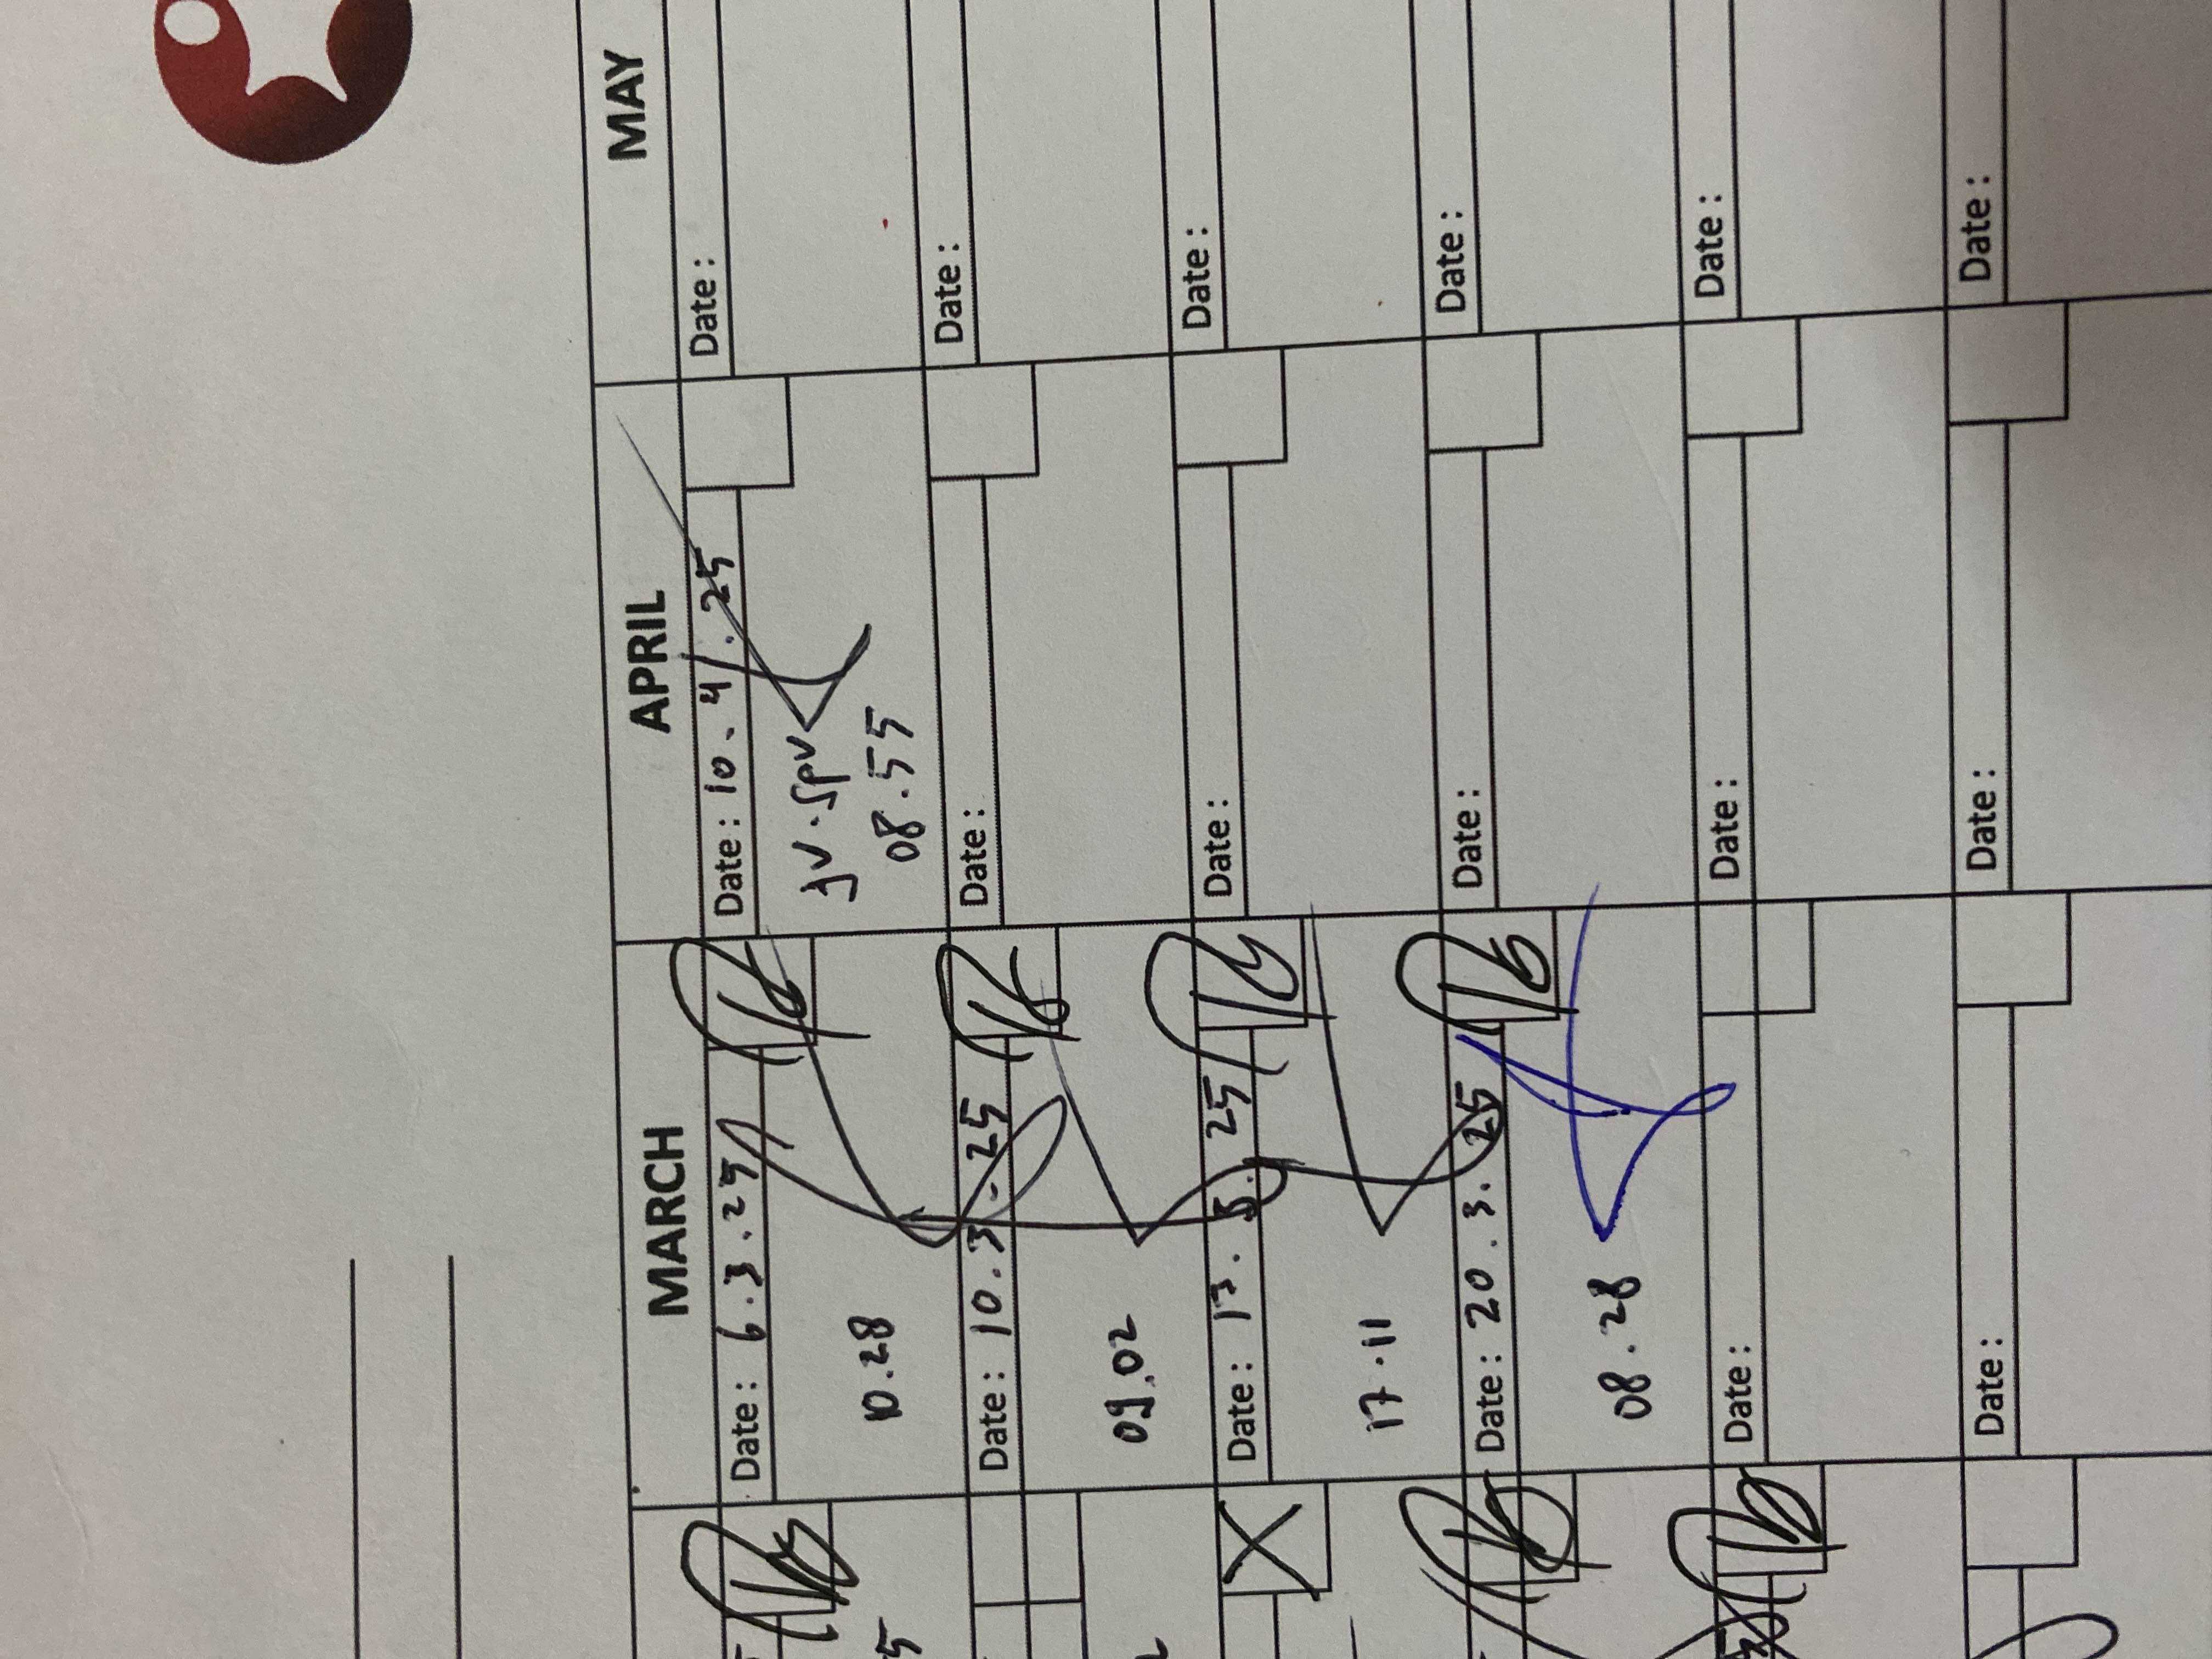 MARCH APRIL MAY
Date : 6.3.25 Date : 10.4.25 Date :
10.28 JV.SPV
08.55
Date : 10.3.25 Date : Date :
09.02
Date : 13.3.25 Date : Date :
17.11
Date : 20.3.25 Date : Date :
08.28
Date : Date : Date :
Date : Date : Date :